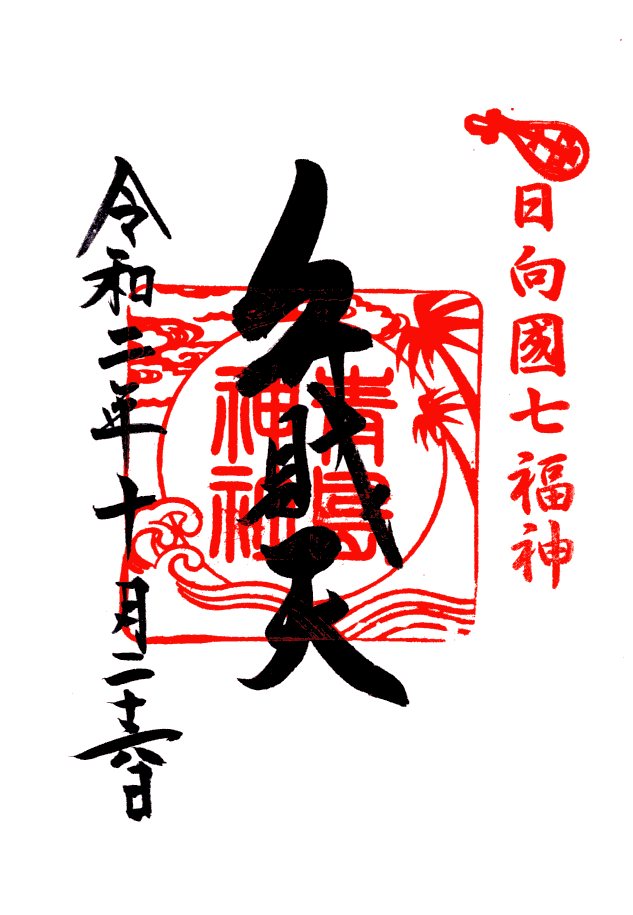 日向國七福神
弁財天
青島
神社
令和二年十月二十六日